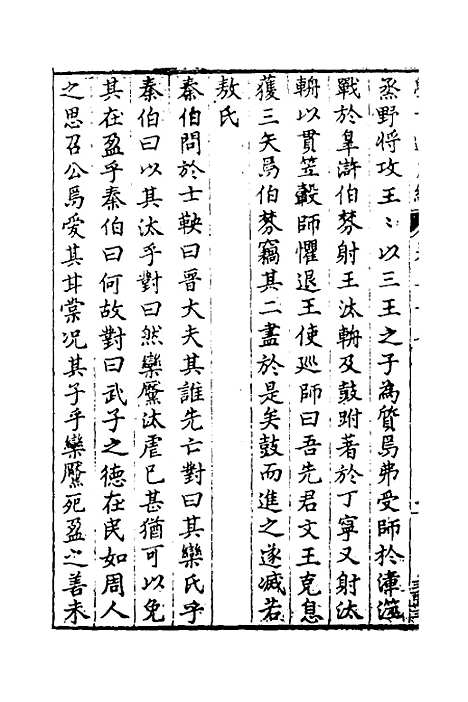 烝野将攻王〻以三王之子為質焉弗受師於漳澨
戰於皐滸伯棼射王汰輈及鼓跗著於丁寧又射汰
輈以貫笠轂師懼退王使廵師曰吾先君文王克息
獲三矢焉伯棼竊其二盡於是矣鼓而進之遂滅若
敖氏
秦伯問於士鞅曰晋大夫其誰先亡對曰其欒氏乎
秦伯曰以其汰乎對曰然欒黶汰虐已甚猶可以免
其在盈乎秦伯曰何故對曰武子之徳在民如周人
之思召公焉愛其甘棠况其子乎欒黶死盈之善未